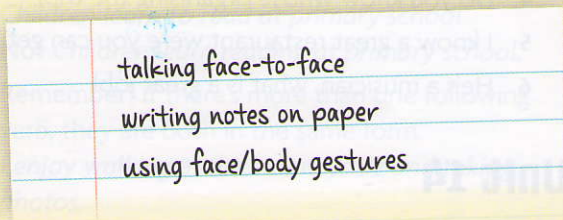 talking face-to-face
writing notes on paper
using face/body gestures